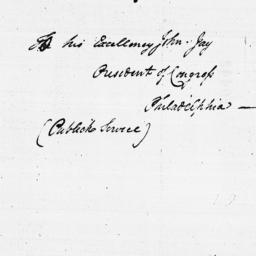 To his Excellency John Jay
President of Congress
Philadelphia —
(Publick Service)